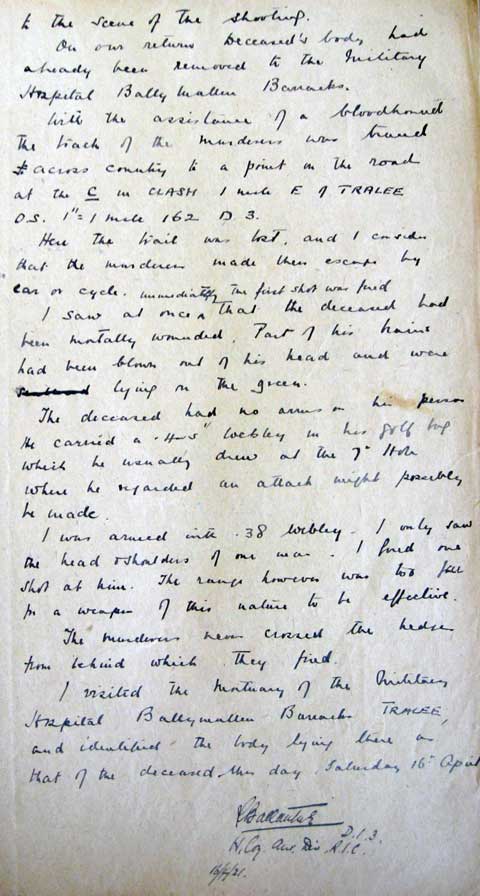 to the scene of the shooting.
On our return Deceased's body had
already been removed to the Military
Hospital Ballymullen Barracks.
With the assistance of a bloodhound
the track of the murderers was traced
across country to a point on the road
at the C in CLASH 1 mile E of TRALEE
O.S. 1"=1 mile 162 D 3.
Here the trail was lost, and I consider
that the murderers made their escape by
car or cycle. immediately the first shot was fired
I saw at once that the deceased had
been mortally wounded. Part of his brains
had been blown out of his head and were
lying on the green.
The deceased had no arms on his person
He carried a .45" Webley in his golf bag
which he usually drew at the 7th Hole
where he regarded an attack might possibly
be made.
I was armed with .38 Webley. I only saw
the head & shoulders of one man. I fired one
shot at him. The range however was too far
for a weapon of this nature to be effective.
The murderers never crossed the hedge
from behind which they fired.
I visited the Mortuary of the Military
Hospital Ballymullen Barracks TRALEE,
and identified the body lying there as
that of the deceased this day Saturday 16th April
D.I.3.
H. Coy Aux. Div. R.I.C.
16/4/21.